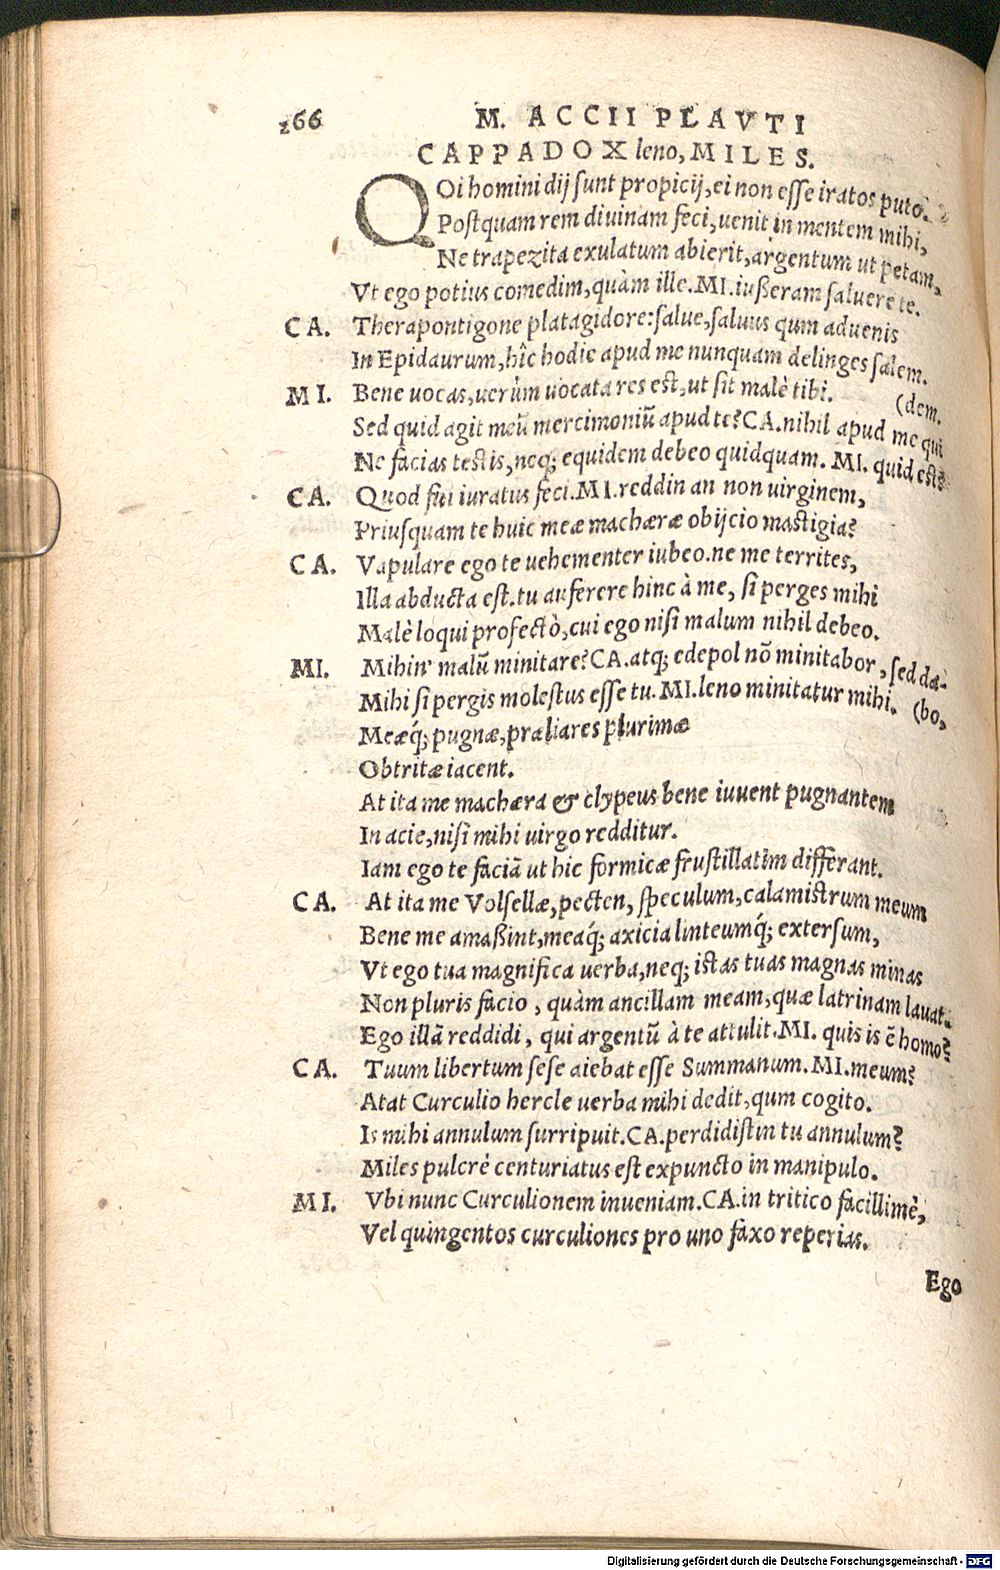 266 M. ACCII PLAVTI
CAPPADOX leno, MILES.
QOi homini dij sunt propicij, ei non esse iratos puto.
Postquam rem diuinam feci, uenit in mentem mihi,
Ne trapezita exulatum abierit, argentum ut petam,
Vt ego potius comedim, quàm ille. MI. iusseram saluere te.
CA. Therapontigone platagidore: salue, saluus qum aduenis
In Epidaurum, hîc hodie apud me nunquam delinges salem.
MI. Bene uocas, uerùm uocata res est, ut sit malè tibi. (dem.
Sed quid agit meũ mercimoniũ apud te? CA. nihil apud me qui
Ne facias testis, neq; equidem debeo quidquam. MI. quid est?
CA. Quod fui iuratus feci. MI. reddin an non uirginem,
Priusquam te huic meæ machæræ obijcio mastigia?
CA. Vapulare ego te uehementer iubeo. ne me territes,
Illa abducta est. tu auferere hinc à me, si perges mihi
Malè loqui profectò, cui ego nisi malum nihil debeo.
MI. Mihin' malũ minitare? CA. atq; edepol nõ minitabor, sed da-
Mihi si pergis molestus esse tu. MI. leno minitatur mihi. (bo,
Meæq́; pugnæ, præliares plurimæ
Obtritæ iacent.
At ita me machæra & clypeus bene iuuent pugnantem
In acie, nisi mihi uirgo redditur.
Iam ego te faciã ut hic formicæ frustillatim differant.
CA. At ita me Volsellæ, pecten, speculum, calamistrum meum
Bene me amassint, meaq́; axicia linteumq́; extersum,
Vt ego tua magnifica uerba, neq; istas tuas magnas minas
Non pluris facio, quàm ancillam meam, quæ latrinam lauat.
Ego illã reddidi, qui argentũ à te attulit. MI. quis is ẽ homo?
CA. Tuum libertum sese aiebat esse Summanum. MI. meum?
Atat Curculio hercle uerba mihi dedit, qum cogito.
Is mihi annulum surripuit. CA. perdidistin tu annulum?
Miles pulcrè centuriatus est expuncto in manipulo.
MI. Vbi nunc Curculionem inueniam. CA. in tritico facillimè,
Vel quingentos curculiones pro uno faxo reperias.
Ego
Digitalisierung gefördert durch die Deutsche Forschungsgemeinschaft - DFG